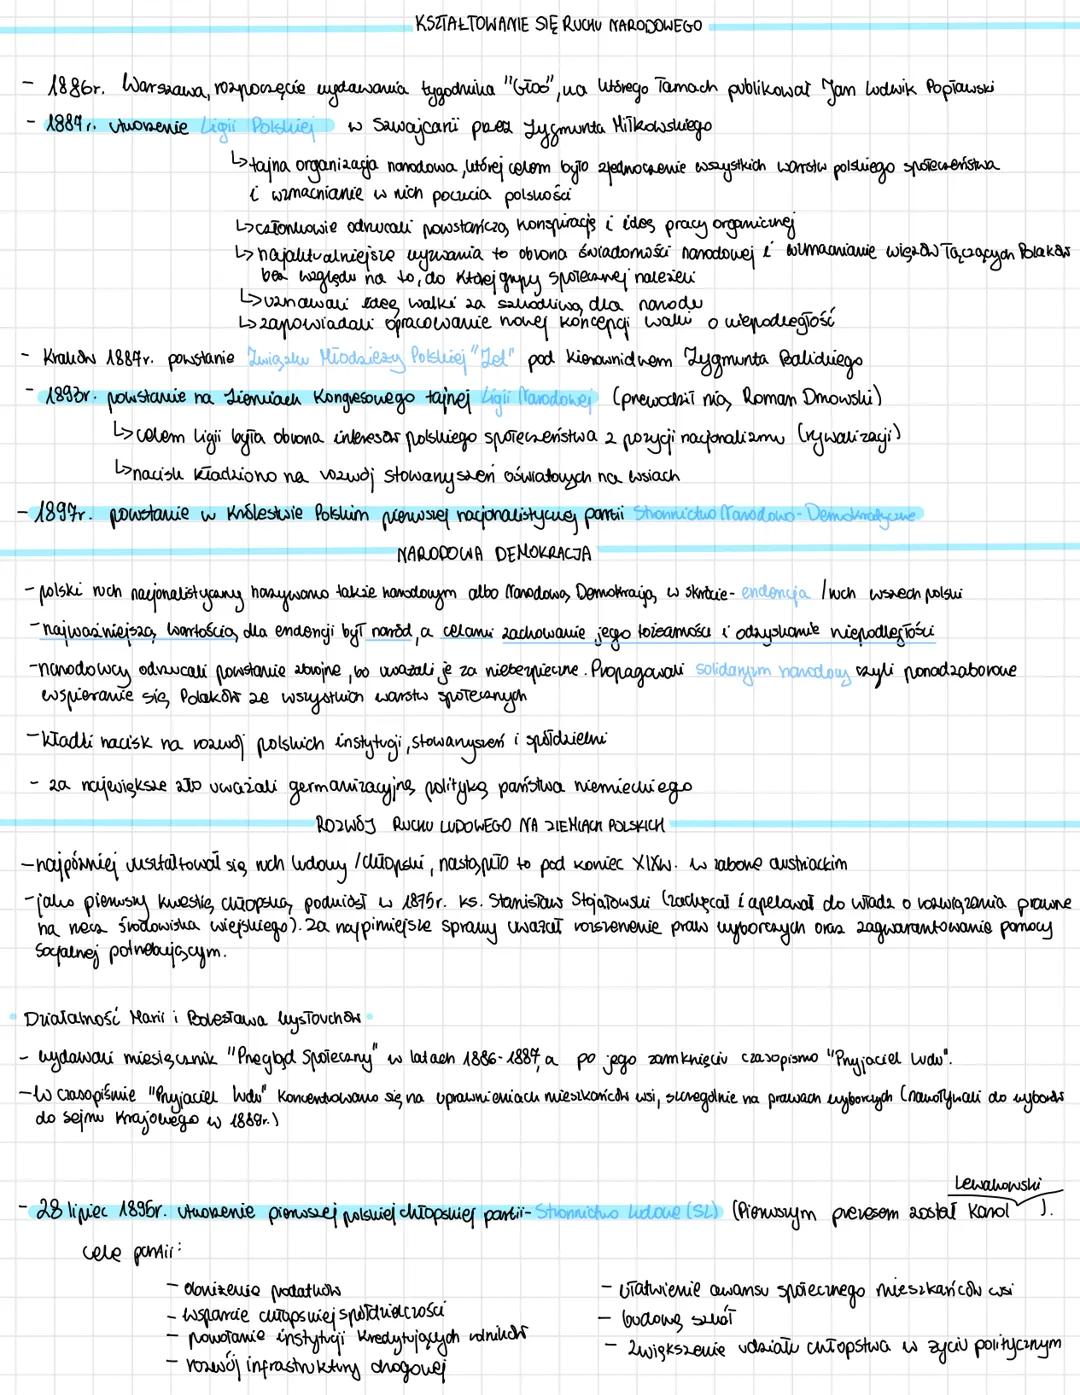 KSZTAŁTOWANIE SIĘ RUCHU NARODOWEGO
- 1886r. Warszawa, rozpoczęcie wydawania tygodnika "Głos", na którego łamach publikował Jan Ludwik Popławski
- 1887r. utworzenie Ligii Polskiej w Szwajcarii przez Zygmunta Miłkowskiego
↳ tajna organizacja narodowa, której celem było zjednoczenie wszystkich warstw polskiego społeczeństwa
i wzmacnianie w nich poczucia polskości
↳ członkowie odrzucali powstańczą konspirację i ideę pracy organicznej
↳ najaktualniejsze wyzwania to obrona świadomości narodowej i wzmacnianie więzów łączących Polaków
bez względu na to, do której grupy społecznej należeli
↳ uznawali ideę walki za szkodliwą dla narodu
↳ zapowiadali opracowanie nowej koncepcji walki o niepodległość
- Kraków 1887r. powstanie Związku Młodzieży Polskiej "Zet" pod kierownictwem Zygmunta Balickiego
- 1893r. powstanie na Ziemiach Kongresowego tajnej Ligii Narodowej (przewodził nią Roman Dmowski)
↳ celem Ligii była obrona interesów polskiego społeczeństwa z pozycji nacjonalizmu (rywalizacji)
↳ nacisk kładziono na rozwój stowarzyszeń oświatowych na wsiach
- 1897r. powstanie w Królestwie Polskim pierwszej nacjonalistycznej partii Stronnictwo Narodowo-Demokratyczne
NARODOWA DEMOKRACJA
- polski ruch nacjonalistyczny nazywano także narodowym albo Narodową Demokracją, w skrócie- endencja / ruch wszechpolski
- najważniejszą wartością dla endencji był naród, a celami zachowanie jego tożsamości i odzyskanie niepodległości
- narodowcy odrzucali powstanie zbrojne, bo uważali je za niebezpieczne. Propagowali solidaryzm narodowy czyli ponadzaborowe
wspieranie się Polaków ze wszystkich warstw społecznych
- kładli nacisk na rozwój polskich instytucji, stowarzyszeń i spółdzielni
- za największe zło uważali germanizacyjną politykę państwa niemieckiego
ROZWÓJ RUCHU LUDOWEGO NA ZIEMIACH POLSKICH
- najpóźniej ukształtował się ruch ludowy / chłopski, nastąpiło to pod koniec XIXw. w zaborze austriackim
- jako pierwszy kwestię chłopską podniósł w 1875r. ks. Stanisław Stojałowski (zachęcał i apelował do władz o rozwiązania prawne
na rzecz środowiska wiejskiego). Za najpilniejsze sprawy uważał rozszerzenie praw wyborczych oraz zagwarantowanie pomocy
socjalnej potrzebującym.
Działalność Marii i Bolesława Wysłouchów
- wydawali miesięcznik "Przegląd Społeczny" w latach 1886-1887, a po jego zamknięciu czasopismo "Przyjaciel Ludu".
- W czasopiśmie "Przyjaciel Ludu" koncentrowano się na uprawnieniach mieszkańców wsi, szczególnie na prawach wyborczych (nawoływali do wyborów
do sejmu Krajowego w 1889r.)
Lewakowski
- 28 lipiec 1895r. utworzenie pierwszej polskiej chłopskiej partii- Stronnictwo Ludowe (SL) (Pierwszym prezesem został Karol ).
cele partii:
- obniżenie podatków
- wsparcie chłopskiej spółdzielczości
- powołanie instytucji kredytujących rolników
- rozwój infrastruktury drogowej
- ułatwienie awansu społecznego mieszkańców wsi
- budowę szkół
- zwiększenie udziału chłopstwa w życiu politycznym